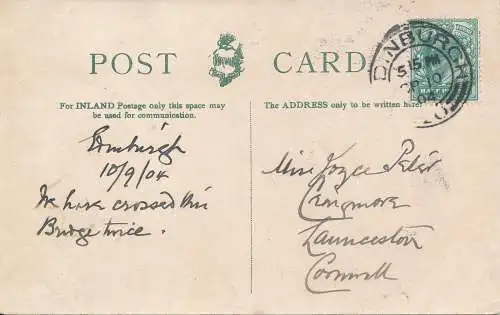 POST CARD
For INLAND Postage only this space may
be used for communication.
The ADDRESS only to be written here.
EDINBURGH
5 15 PM
HALF
Edinburgh
10/9/04
We have crossed this
Bridge twice.
Miss Joyce Peter
Craigmore
Launceston
Cornwall